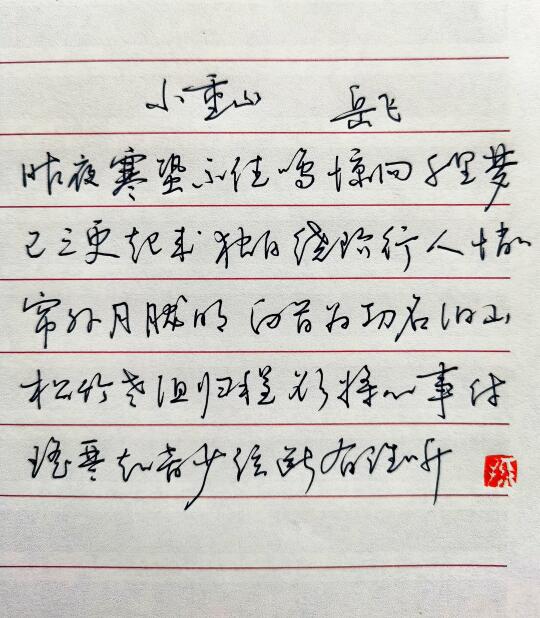 小重山 岳飞
昨夜寒蛩不住鸣惊回千里梦
已三更起来独自绕阶行人悄悄
帘外月胧明白首为功名旧山
松竹老阻归程欲将心事付
瑶琴知音少弦断有谁听